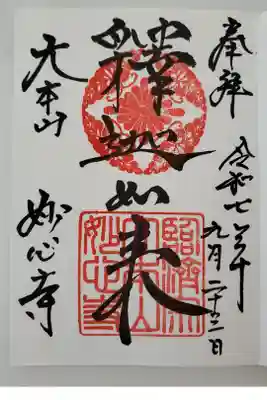 奉拜
令和七年
九月二十三日
釋迦如来
臨濟宗
大本山
妙心寺
大本山
妙心寺